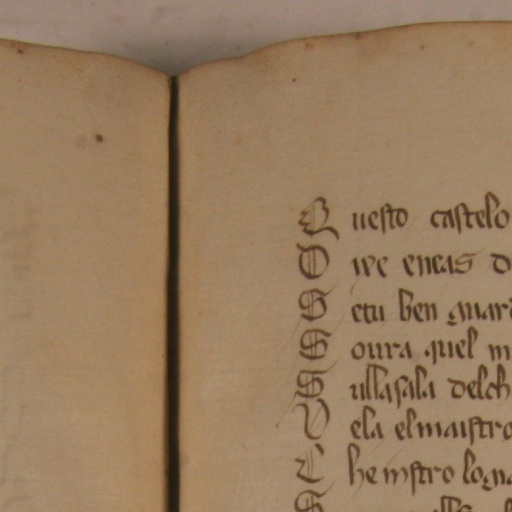 Questo castelo
O ue eneas d
S etu ben guar
S oura quel m
S ullasala delch
V ela el maistro
C he mstro logua
S